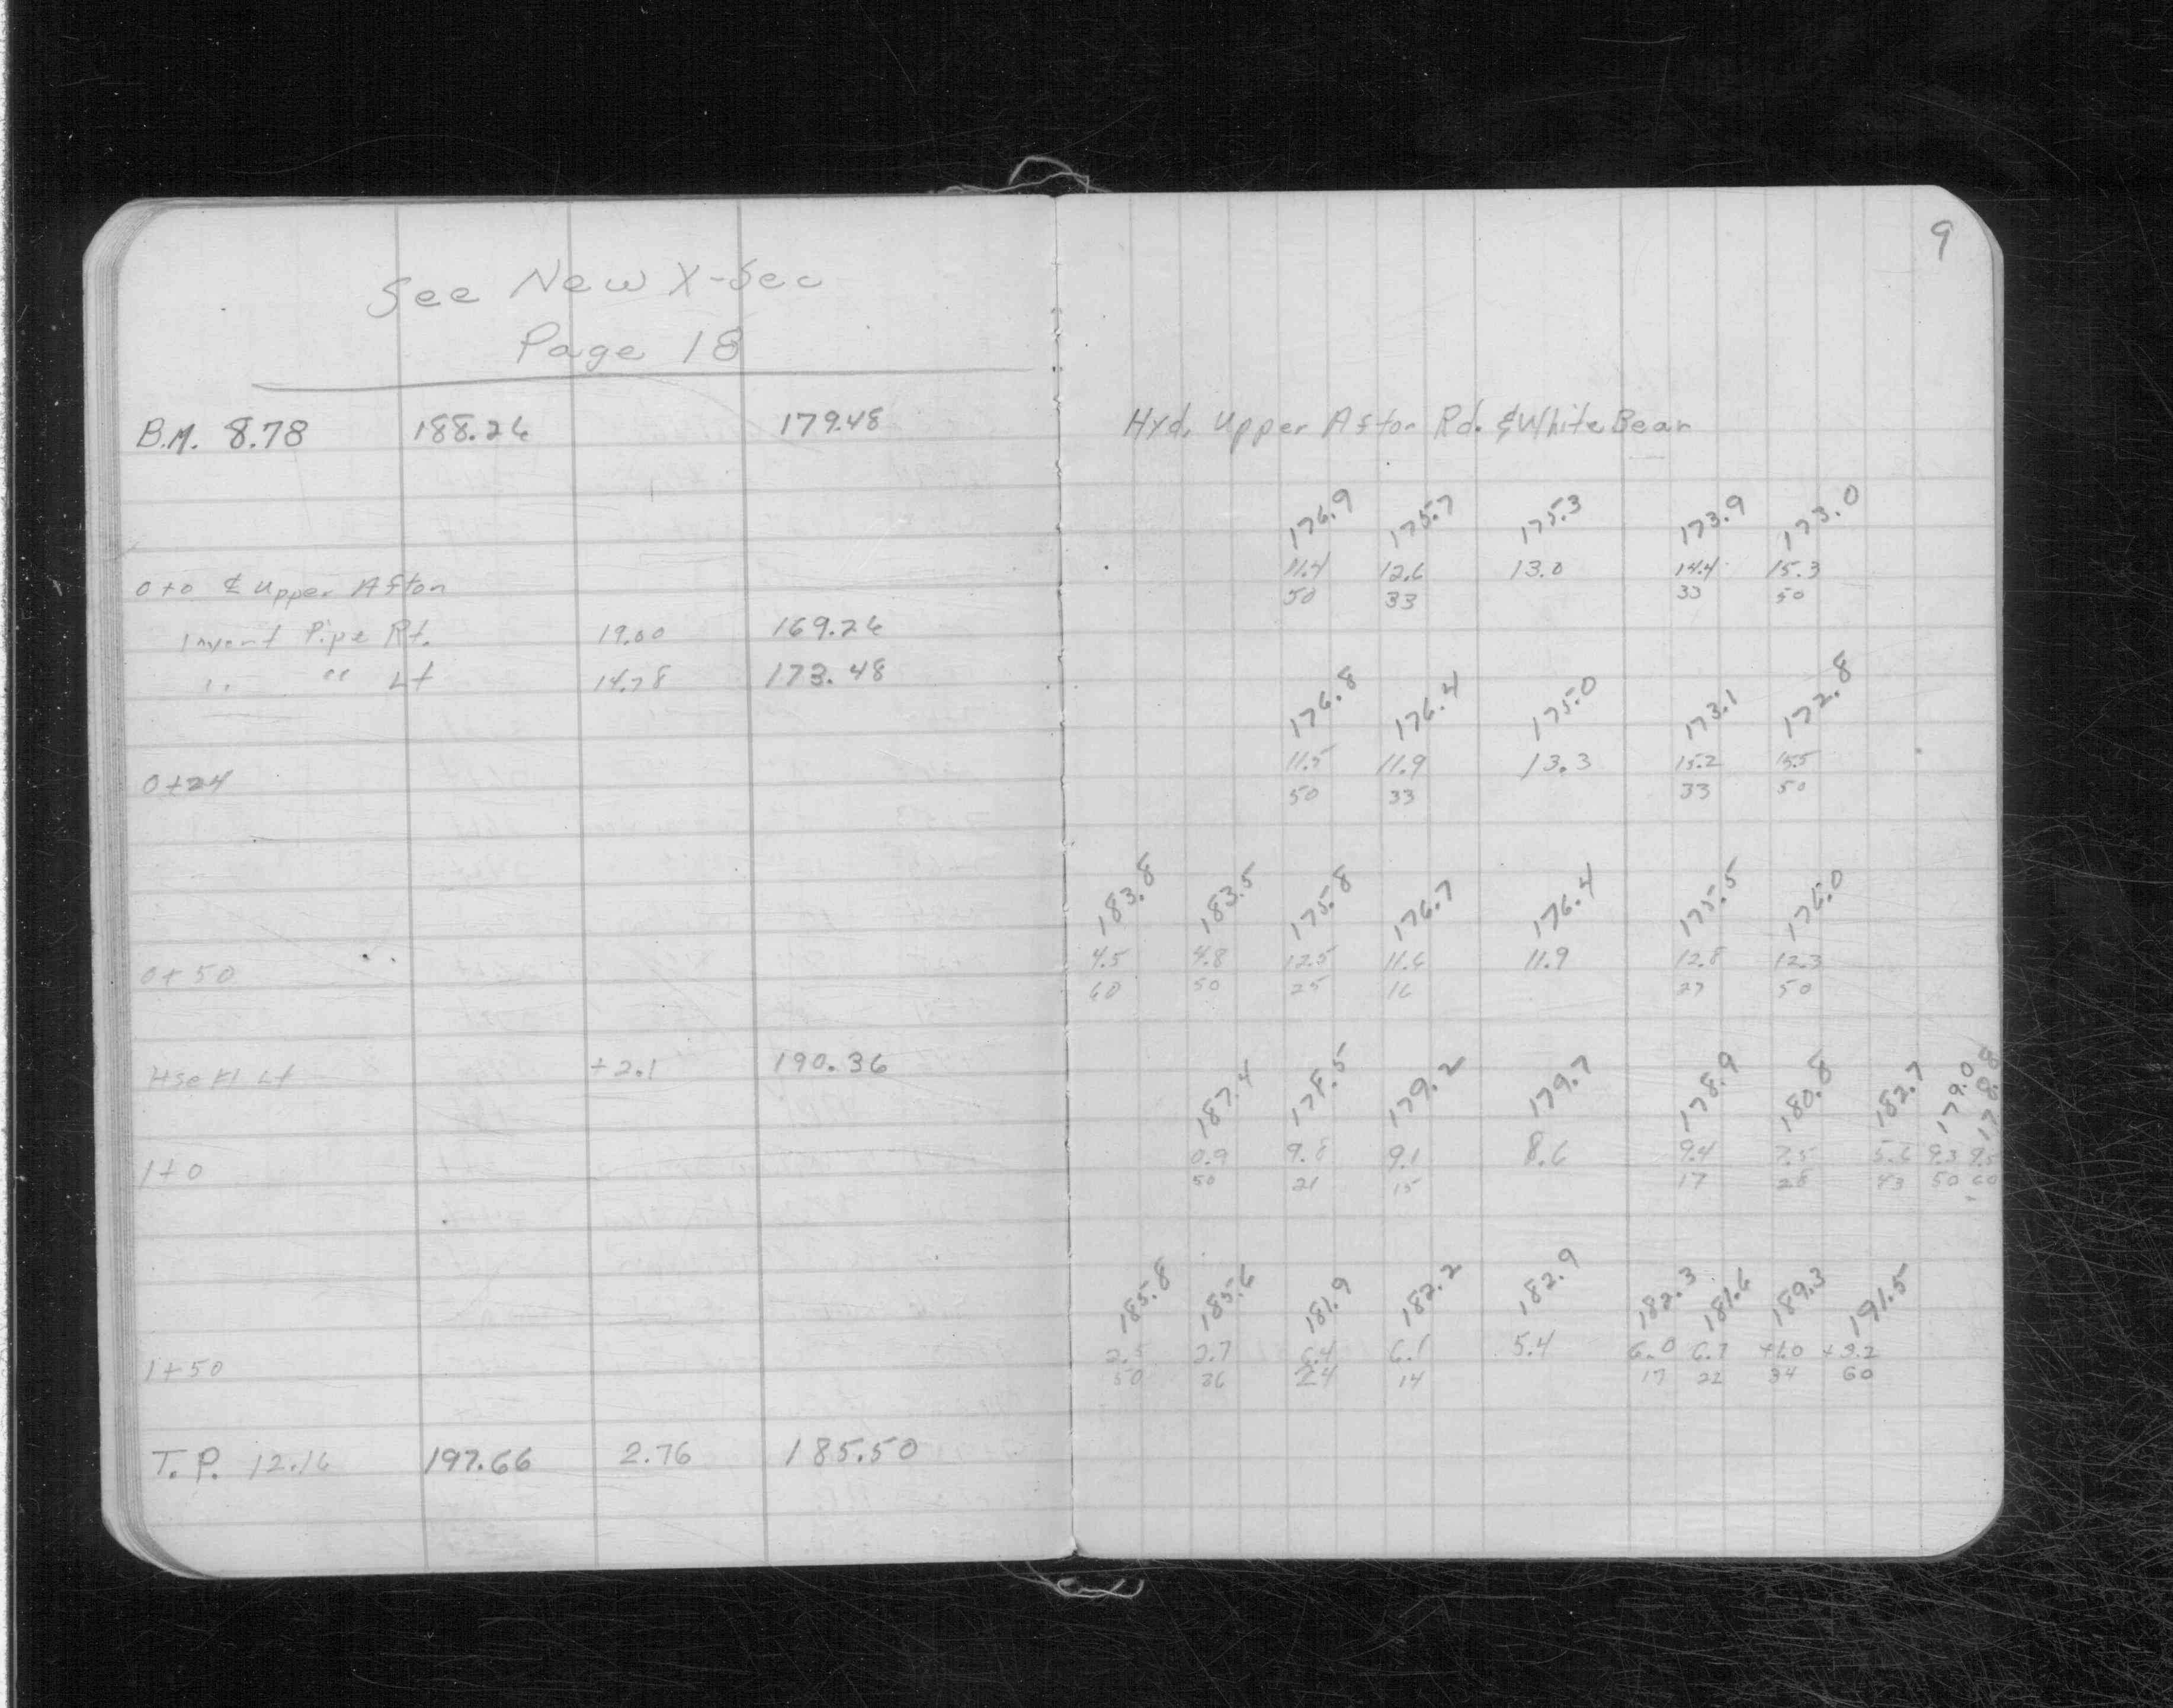 9
See New X-Sec
Page 18
B.M. 8.78 188.26 179.48 Hyd. Upper Afton Rd. & White Bear
176.9 175.7 175.3 173.9 173.0
11.4 12.6 13.0 14.4 15.3
0+0 ℄ Upper Afton 50 33 33 50
Invert Pipe Rt. 19.00 169.26
" " Lt 14.78 173.48
176.8 176.4 175.0 173.1 172.8
11.5 11.9 13.3 15.2 15.5
0+24 50 33 33 50
183.8 183.5 175.8 176.7 176.4 175.5 176.0
4.5 4.8 12.5 11.6 11.9 12.8 12.3
0+50 60 50 25 16 27 50
Hse Fl Lt +2.1 190.36
187.4 178.5 179.2 179.7 178.9 180.8 182.7 179.0 178.8
0.9 9.8 9.1 8.6 9.4 7.5 5.6 9.3 9.5
1+0 50 21 15 17 28 43 50 60
185.8 185.6 181.9 182.2 182.9 182.3 181.6 189.3 191.5
2.5 2.7 6.4 6.1 5.4 6.0 6.7 +1.0 +3.2
1+50 50 36 24 14 17 22 34 60
T.P. 12.16 197.66 2.76 185.50